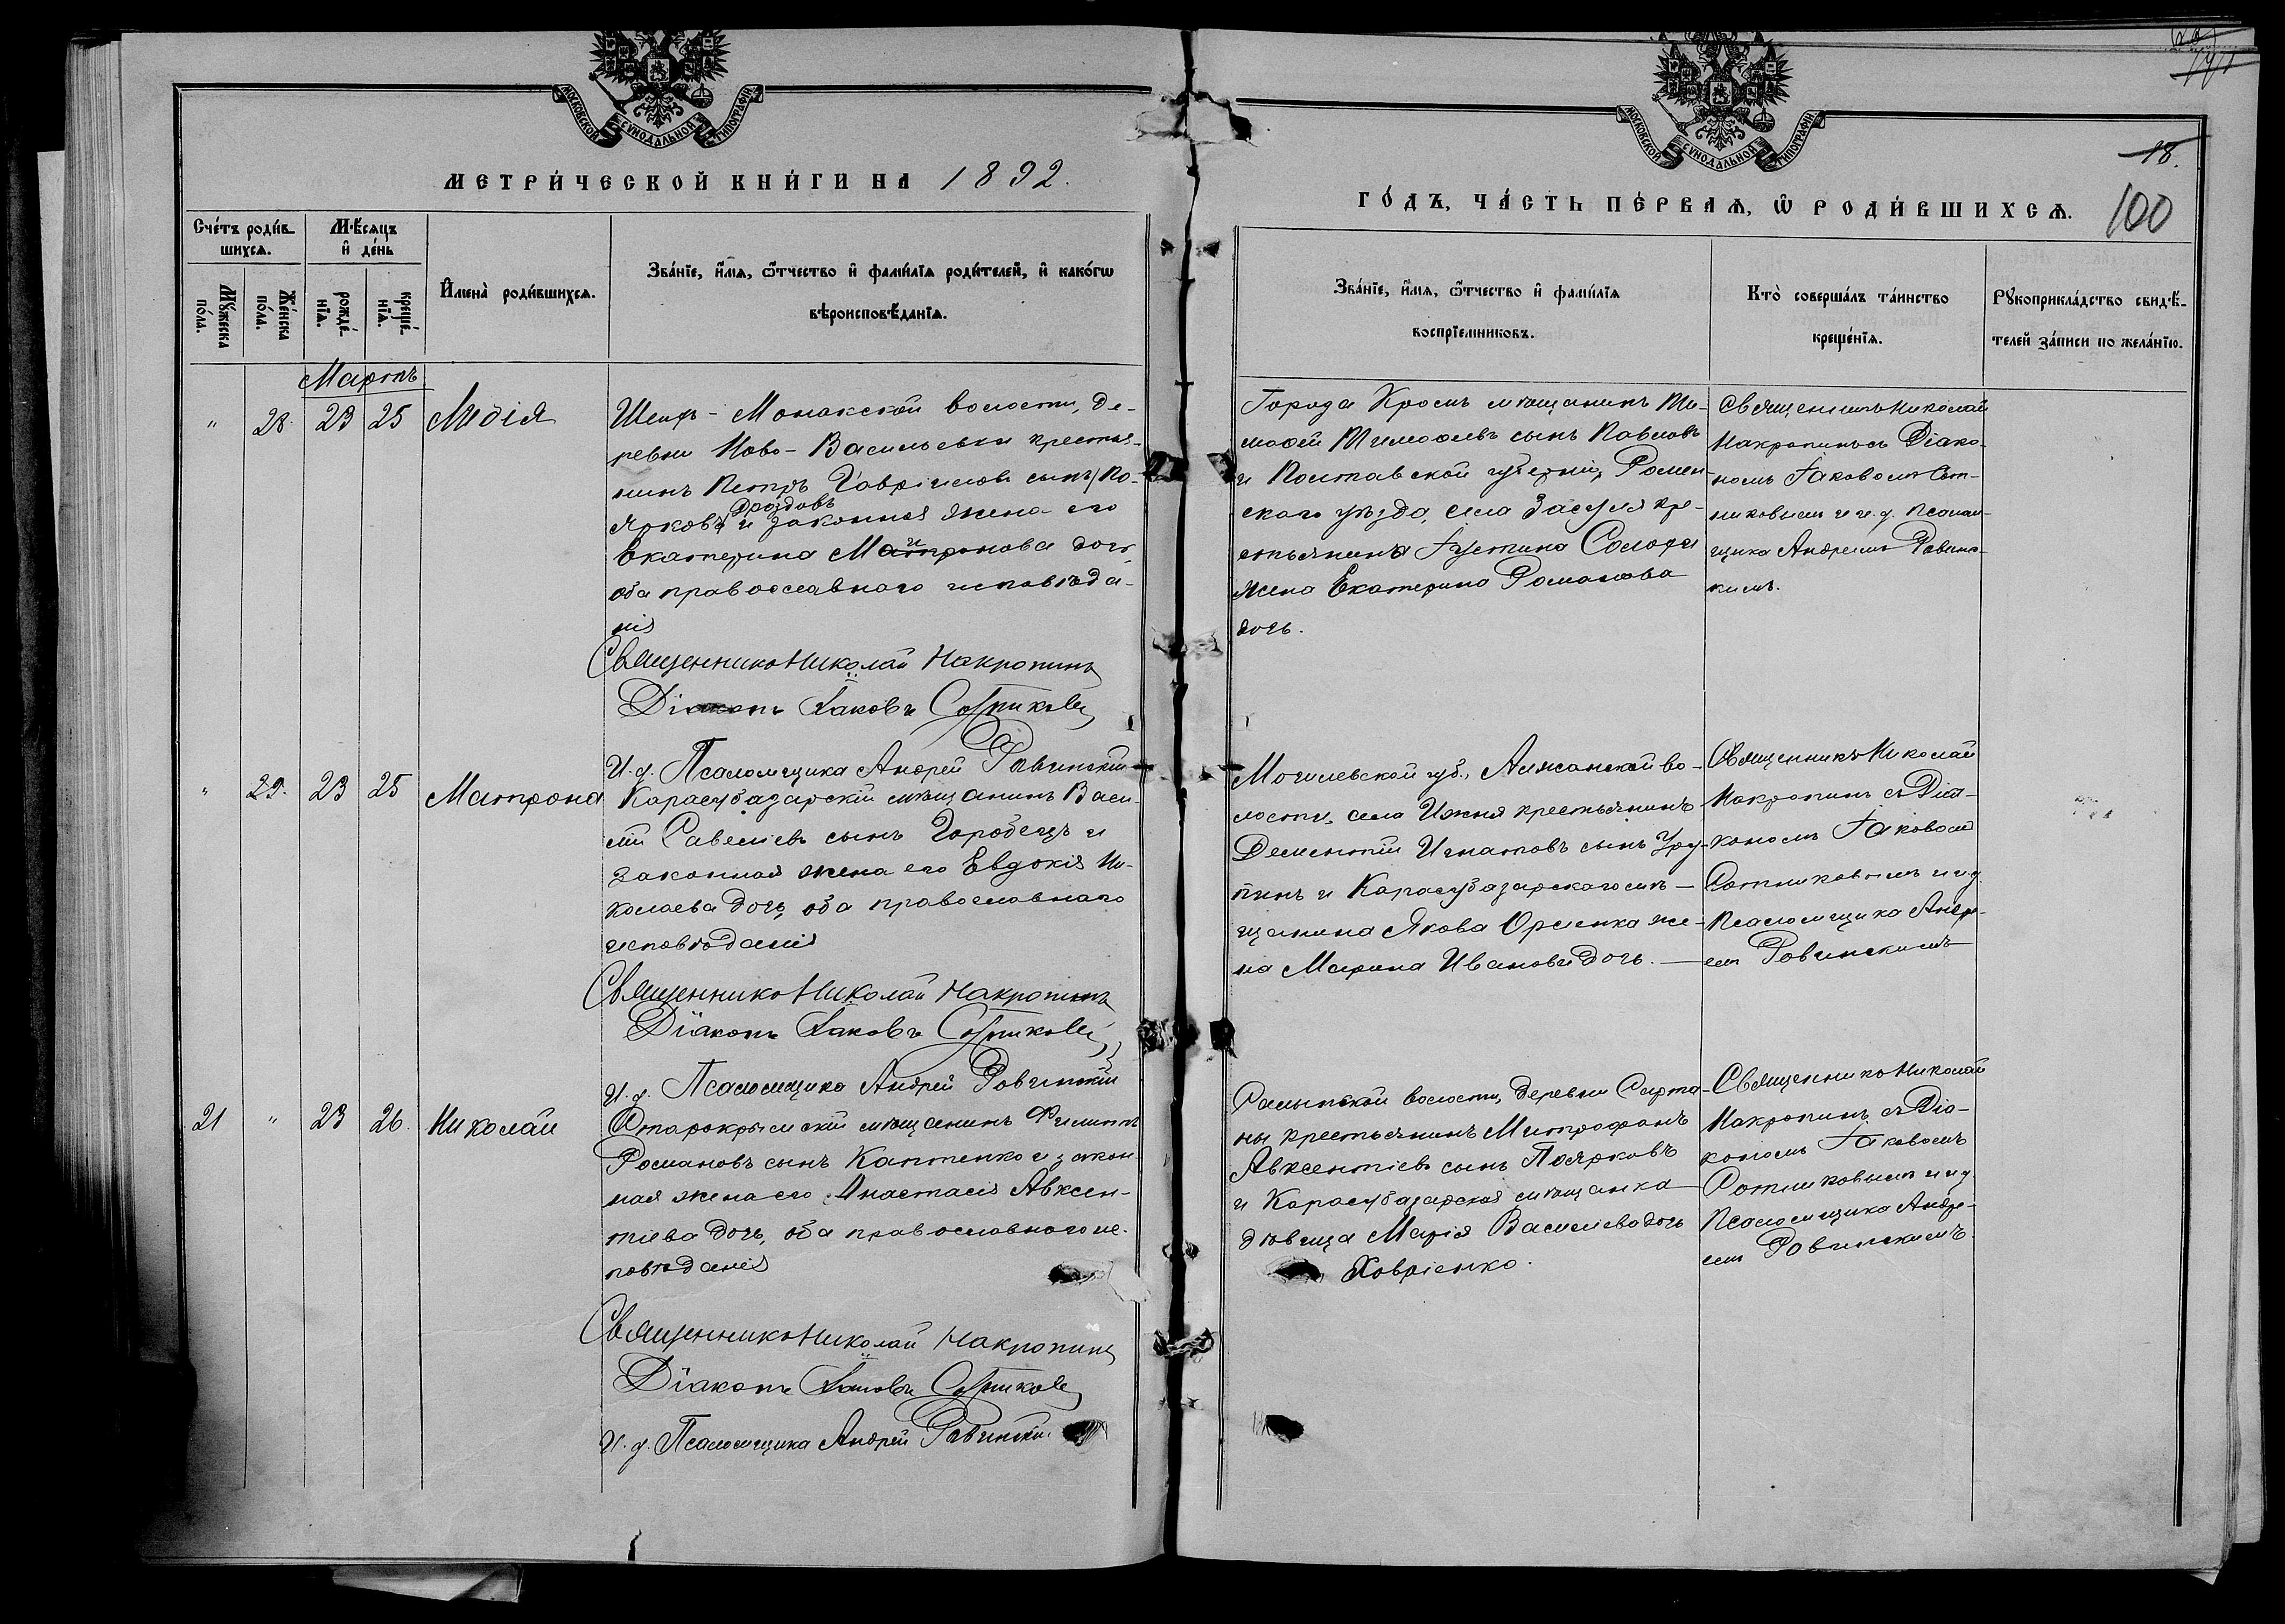 МОСКОВСКОЙ СѴНОДАЛЬНОЙ ТИПОГРАФІИ
МЕТРИ́ЧЕСКОЙ КНИ́ГИ НА 1892.
Сче́тъ роди́в-
шихсѧ.
Мѣ́сяцъ
и҆ де́нь
Мꙋ́жеска
по́ла.
Же́нска
по́ла.
рожде́-
нїѧ.
креще́-
нїѧ.
И҆мена̀ роди́вшихсѧ.
Зва́нїе, и҆́мѧ, ѿ́тчество и҆ фами́лїѧ роди́телей, и҆ како́гѡ
вѣроисповѣ́данїѧ.
Мартъ
" 28. 23 25 Лидія
Шейх-Монакской волости, де-
ревни Ново-Васильевки крестья-
нинъ Петръ Гавріиловъ сынъ (По-
Дроздовъ
ярковъ) и законная жена его
Екатерина дочь
оба православнаго исповѣда-
нія
Священникъ Николай Макропинъ
Діаконъ Іаковъ Сотниковъ
И. д. Псаломщика Андрей Ровинскій
" 29. 23 25 Матрона
Карасубазарскій мѣщанинъ Васи-
лій Савеліевъ сынъ Горобецъ и
законная жена его Евдокія Ни-
колаева дочь, оба православнаго
исповѣданія
Священникъ Николай Макропинъ
Діаконъ Іаковъ Сотниковъ
И. д. Псаломщика Андрей Ровинскій
21 " 23 26. Николай
Старокрымскій мѣщанинъ Филиппъ
Романовъ сынъ Коптенко и закон-
ная жена его Анастасія Авксен-
тіева дочь, оба православнаго ис-
повѣданія
Священникъ Николай Макропинъ
Діаконъ Іаковъ Сотниковъ
И. д. Псаломщика Андрей Ровинскій
МОСКОВСКОЙ СѴНОДАЛЬНОЙ ТИПОГРАФІИ
18.
ГО́ДЪ, ЧА́СТЬ ПЕ́РВАѦ, Ѡ҆ РОДИ́ВШИХСѦ.
100
Зва́нїе, и҆́мѧ, ѿ́тчество и҆ фами́лїѧ
воспрїемниковъ.
Кто̀ соверша́лъ та́инство
креще́нїѧ.
Рꙋкоприкла́дство свидѣ́-
телей за́писи по жела́нїю.
Города Кромъ мѣщанинъ Ти-
мофей Тимофеевъ сынъ Павловъ
и Полтавской губерніи, Ромен-
скаго уѣзда, села Засулья кре-
стьянина Іустина Солохи
жена Екатерина Романова
дочь.
Священникъ Николай
Макропинъ съ Діако-
номъ Іаковомъ Сот-
никовымъ и и. д. псалом-
щика Андреемъ Ровинс-
кимъ.
Могилевской губ., во-
лости, села крестьянинъ
Дементій Игнатовъ сынъ
и Карасубазарскаго мѣ-
щанина Якова же-
на Марина Иванова дочь.
Священникъ Николай
Макропинъ съ Діа-
кономъ Іаковомъ
Сотниковымъ и и д.
Псаломщика Андре-
емъ Ровинскимъ
волости, деревни Сарта-
ны крестьянинъ Митрофанъ
Авксентіевъ сынъ Поярковъ
и Карасубазарская мѣщанка
дѣвица Марія Василіева дочь
Ховріенко.
Священникъ Николай
Макропинъ съ Діа-
кономъ Іаковомъ
Сотниковымъ и и д
Псаломщика Андре-
емъ Ровинскимъ.